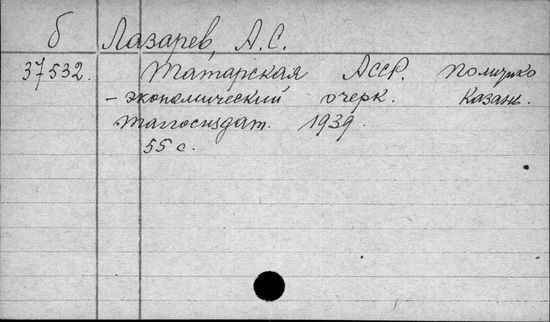 б Лазарев, А.С.
37532. Татарская АССР. Политико
- экономический очерк. Казань.
Татгосиздат. 1939.
55 с.